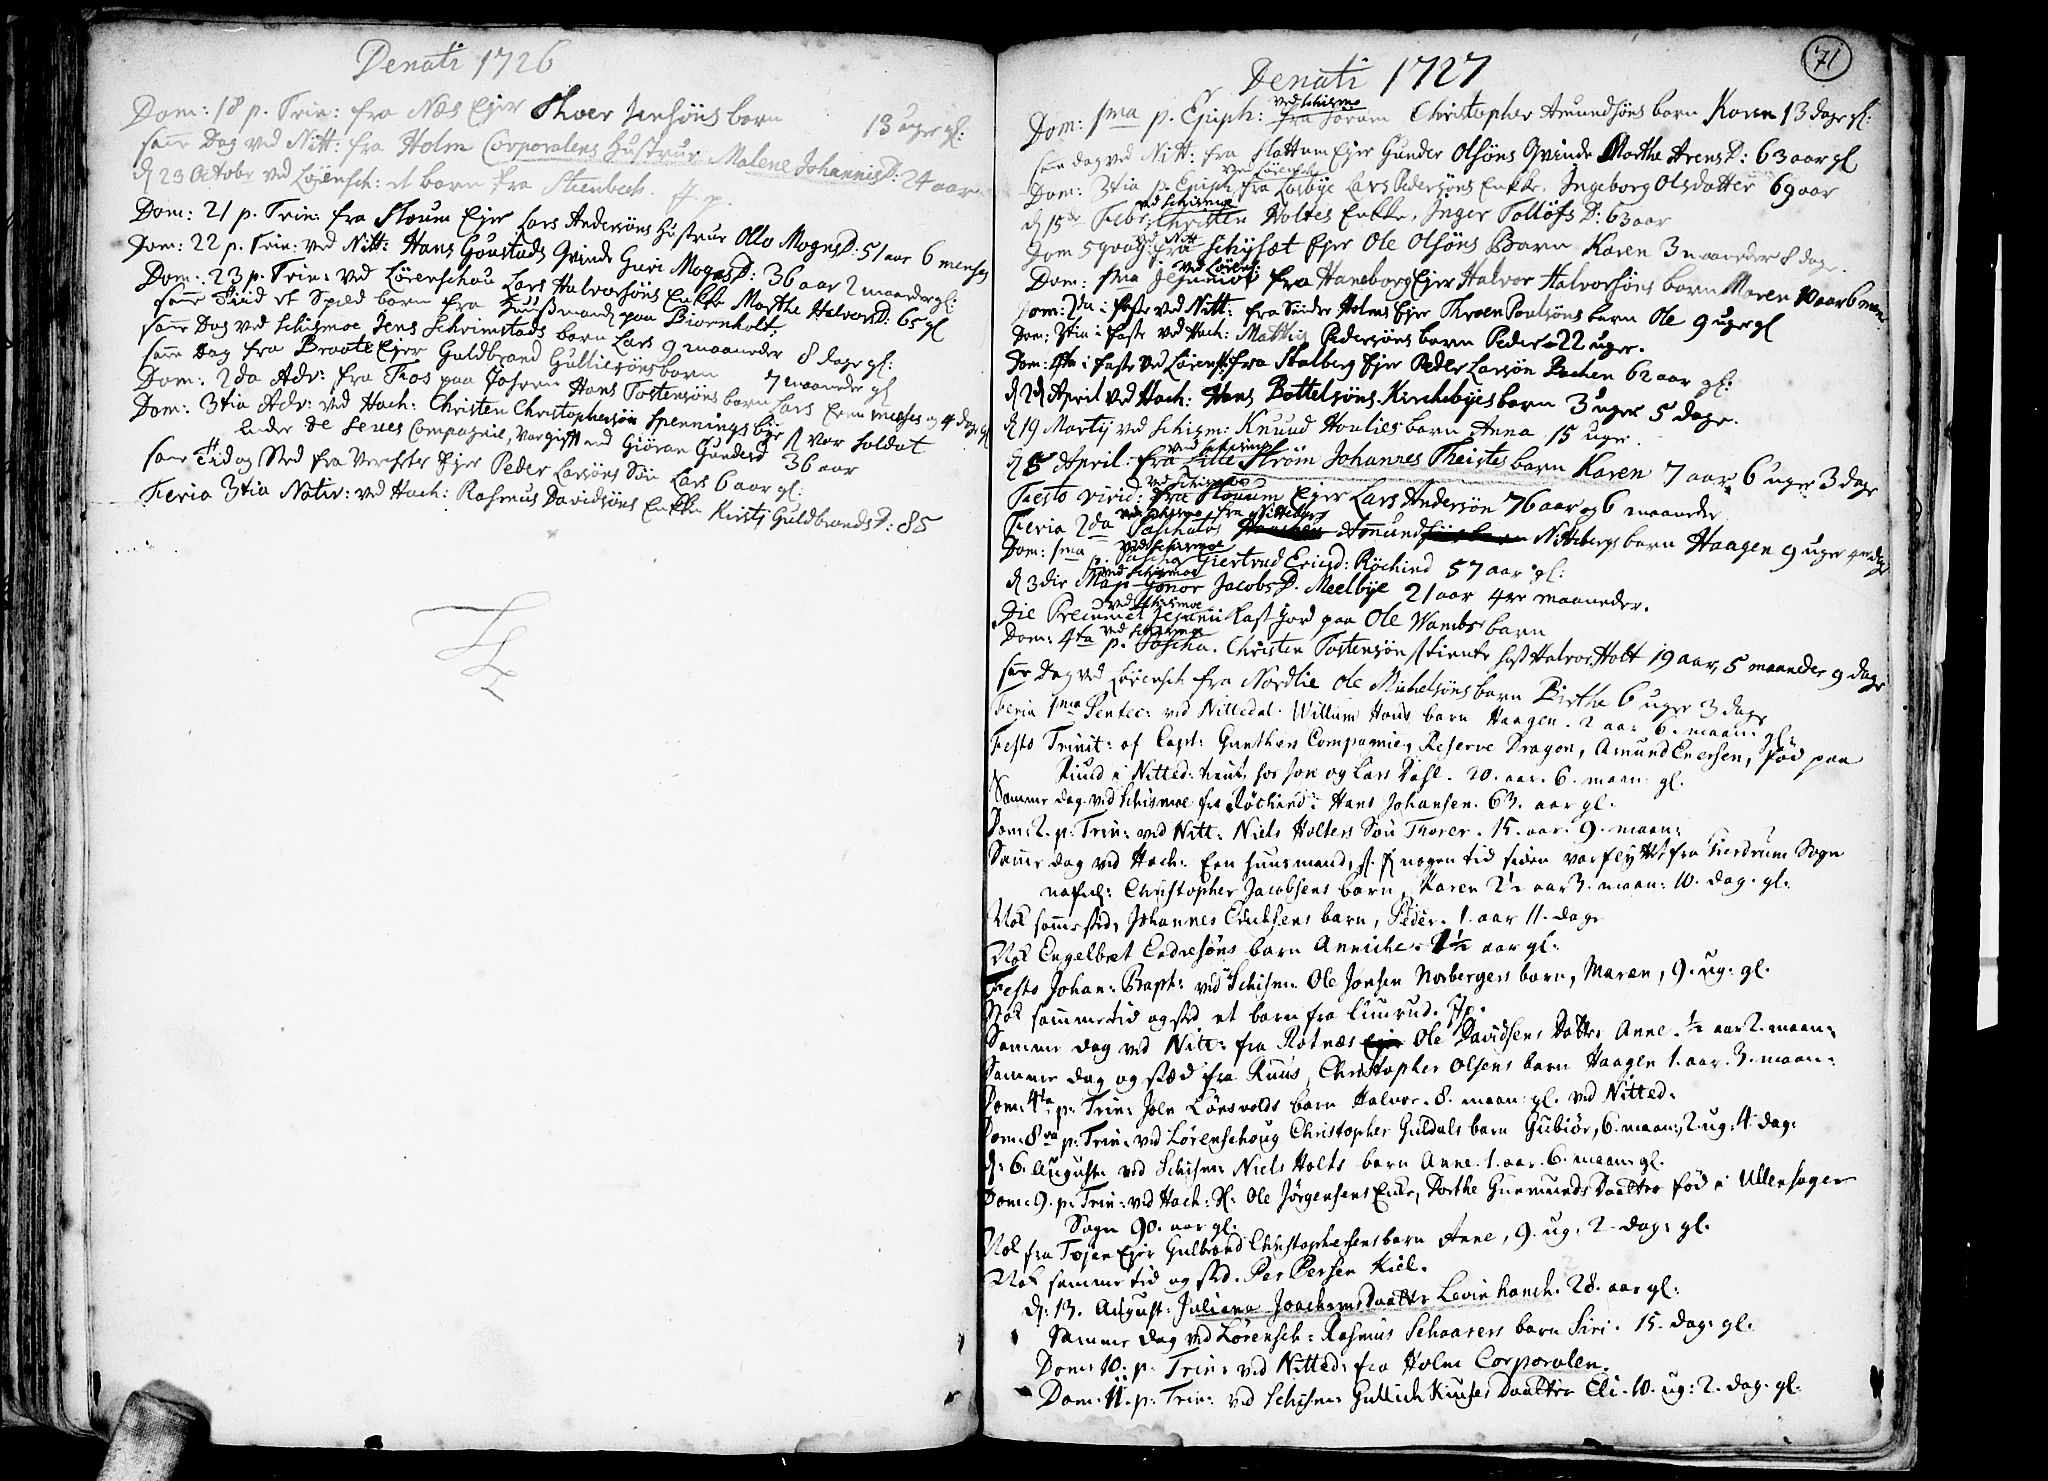 Denati 1726
Dom: 18 p. Trin: fra Næs Ejer Thoer Jensöns barn 13 uger gl:
sam̄e Dag ved Nitt: fra Holm Corporalens Hustrue Malene JohannisD: 24 aar
d 23 Octobr ved Löiensch: et barn fra Steenbech
Dom: 21 p. Trin: fra Ejer Lars Andersöns Hustrue Olle MognsD: 51 aar 6 menses
Dom: 22 p. Trin: ved Nitt: Hans Goustads Qvinde Guri MognsD: 36 aar 2 maaneder gl:
Dom: 23 p. Trin: ved Lörenschou Lars Halvorsöns Enke Marthe HalvorsD: 65 gl
sam̄e Tiid et Spæd barn fra Huusmand paa Biornholt.
sam̄e Dag ved Schismoe Jens Schrimstads barn Lars 9 maaneder 8 dage gl:
sam̄e Dag fra Braate Ejer Guldbrand Gulliesöns barn 7 maaneder gl
Dom: 2da Adv: fra Mos paa Hans Tostensöns barn Lars menses og 4 dage gl
Dom: 3tia Adv: ved Hach: Christen Christophersön Spennings bÿe var Soldat
under De Seues Compagnie, var gift med Giöran GundersD 36 aar
sam̄e Tid og Sted fra Ejer Peder Larsöns Sön Lars 6 aar gl:
Feria 3tia Nativ: ved Hach: Rasmus Davidsöns Enke Kirsti GuldbrandsD: 85
71
Denati 1727
Dom: 1ma p. Epiph: ved Schismo Christopher Amundsöns barn Karen 13 dage gl:
sam̄e dag ved Nitt: fra Slattum Ejer Gunder Olsöns Qvinde Marthe ArensD: 63 aar gl
Dom: 3tia p. Epiph ved Lörensch fra Losbÿe Lars Pedersöns Enke, Ingeborg Olsdotter 69 aar
d 15de Febr: ved Schismoe Christen Holtes Enke, Inger TollöfsD: 63 aar
Dom 5qvag: ved Nitt fra Schÿset Ejer Ole Olsöns Barn Karen 3 maaneder 8 dage.
Dom: 1ma ved Lörens: fra Haneborg Ejer Halvor Halvorsöns barn Maren 10 aar 6 men.
Dom: 2da i faste ved Nitt: fra Sönder Holm Ejer Thröen Poulsöns barn Ole 9 uger gl
Dom: 3tia i faste ved Hach: Mattis Pedersöns barn Peder 22 uger.
Dom: 4ta i faste ved Lörensk: fra Stalberg Ejer Peder Larsön Bachen 62 aar gl:
d 2d April ved Hach: Hans Bottelsöns Kirchebÿes barn 3 uger 5 dage.
d 19 Martÿ ved Schism: Knuud Houlies barn Anna 15 uger.
d 5 April: ved Schismo fra Lille Ström Johannes Theistes barn Karen 7 aar 6 uger 3 dage
Festo virid: ved Schismoe fra Ejer Lars Andersön 76 aar og 6 maaneder
Feria 2da Paschatos ved Schismo fra Nitteberg Amund Nitteberg barn Haagen 9 uger
Dom: 1ma p. Pascha ved Schismoe Giertrud EricsD: Röchind 57 aar gl:
d 3die Maÿ ved Schismoe Gonor JacobsD. Meelbÿe 21 aar 4re maaneder.
Die Precum et Jejunii ved Schismoe Kast Jord paa Ole Wambs barn
Dom: 4ta p. Pascha. ved Schismoe Christen Tostensön tiente hos Halvor Holt 19 aar, 5 maaneder 9 dage
sam̄e Dag ved Lörensch fra Nordlie Ole Michelsöns barn Birthe 6 uger 3 dage
Feria 1ma Pentec: ved Nittedal. Willum Hans barn Haagen. 2 aar 6. maan: gl:
Festo Trinit: af Capt: Gunthers Compagnie, Reserve Dragon, Amund Enersen, fød paa
Ruud i Nitted: hos Jon og Lars Dahl. 20. aar. 6. maan: gl.
Samme dag ved Schismoe fra Röchind: Hans Johansen. 63. aar gl.
Dom: 2. p. Trin: ved Nitt: Niels Holters Sön Thorer. 15. aar. 9. maan:
Samme dag ved Hach: Een huusmand, nogen tid siden var flyttet fra Gierdrum Sogn
nafnl: Christopher Jacobsens barn, Karen 2½ aar 3. maan: 10. dag. gl:
Nok sammesteds Johannes Erichsens barn, Peder. 1. aar 11. dage
Nok Engelbret Endresöns barn Anniche. 1½ aar gl:
Festo Johan: Bapt: ved Schism. Ole Jonsen Norbergers barn, Maren, 9. ug: gl.
Nok sammetid og sted et barn fra Linrud.
Samme dag ved Nitt: fra Rotnæs Ole Davidsens Datter Anne. ½ aar 2. maan:
Samme dag og sted fra Ruus, Christopher Olsens barn Haagen 1. aar. 3. maan:
Dom: 4ta p: Trin: Joen Lönsvolds barn Halvor. 8. maan: gl. ved Nitted:
Dom: 8va p: Trin: ved Lørenschoug Christopher Guldals barn Gubiör, 6. maan:, 2. ug: 4. dag:
d: 6. Augusti ved Schism: Niels Holts barn Anne. 1. aar. 6. maan: gl.
Dom: 9. p: Trin: ved Hach: Sl: Ole Jörgensens Enke, Dorthe Gunmunds Daatter fød i Ullensager
Sogn 90. aar gl:
Nok fra Tøjen Ejer Gulbrand Christophersens barn Anne, 9. ug: 2. dag: gl.
Nok samme tid og sted. Per Persen Kiel.
d: 13. August: Juliana Joachems Daatter Levin hanch. 28. aar gl:
Samme dag ved Lørensch: Rasmus Schaarers barn Siri. 15. dag: gl:
Dom: 10. p. Trin: ved Nitted: fra Holm Corporalen.
Dom: 11. p: Trin: ved Schism: Gullich Kinses Daatter Eli. 10. ug: 2. dag. gl.